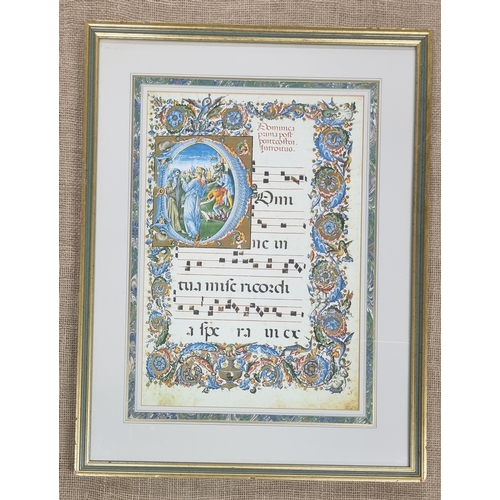 Dominica
prima post
pentecosten.
Introitus.
Domi
ne in
tua mise ricordi
a spe ra in ex